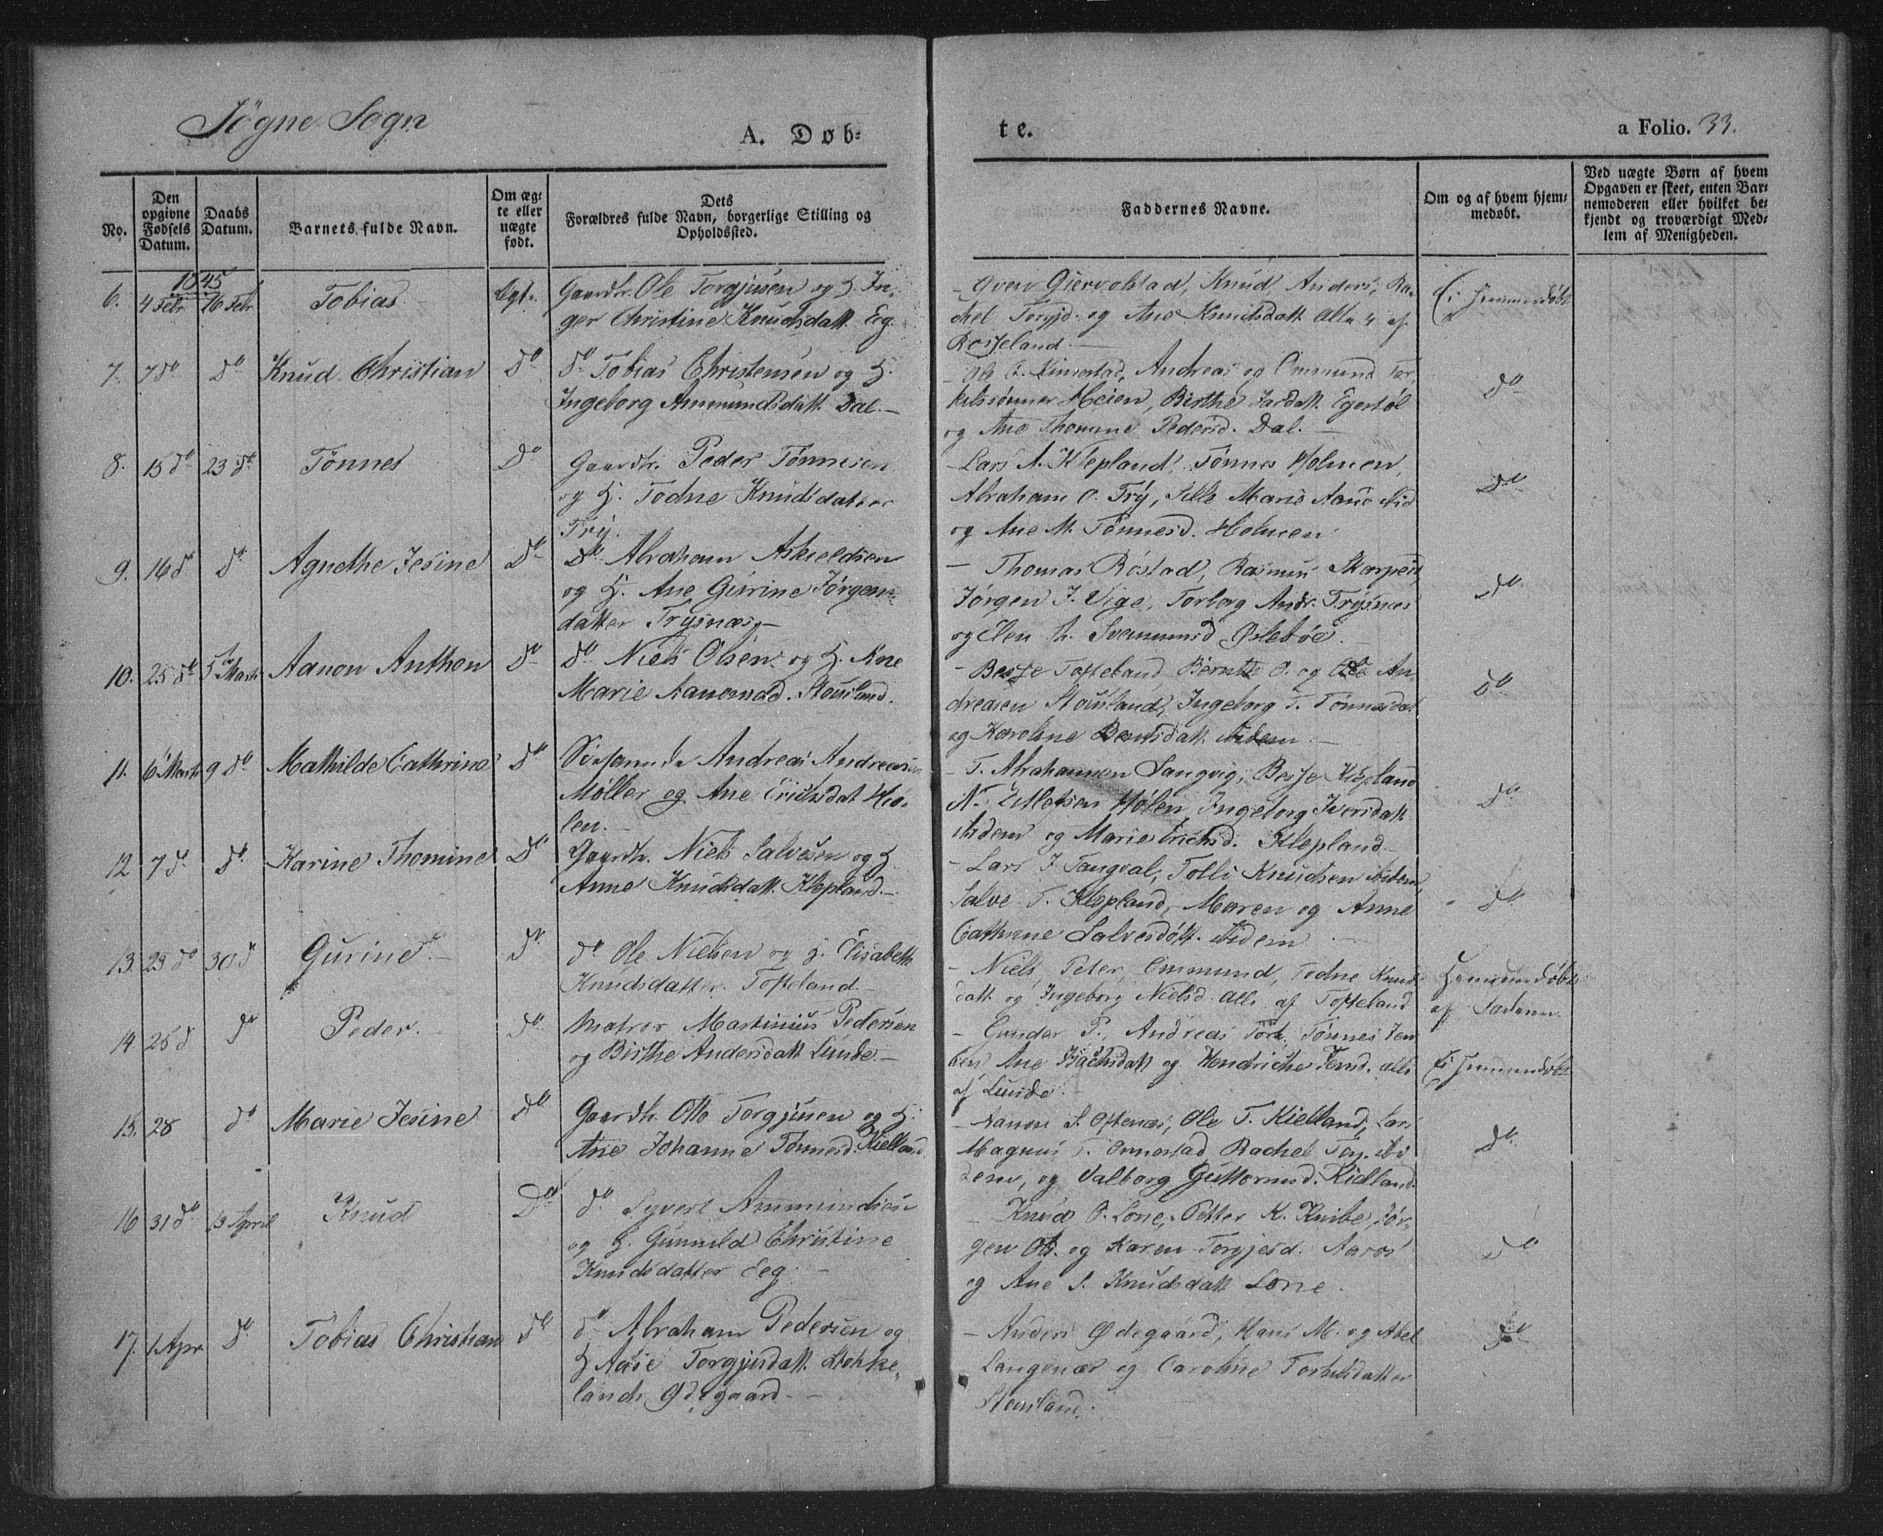 Søgne Sogn
A. Døb-
te.
a Folio. 33.
No.
Den opgivne Fødsels Datum.
Daabs Datum.
Barnets fulde Navn.
Om ægte eller uægte født.
Dets
Forældres fulde Navn, borgerlige Stilling og
Opholdssted.
Faddernes Navne.
Om og af hvem hjem-
medøbt.
Ved uægte Børn af hvem
Opgaven er skeet, enten Bar-
nemoderen eller hvilket be-
kjendt og troværdigt Med-
lem af Menigheden.
1845
6. 4 Febr 16 Febr Tobias Egt. Gaardbr. Ole Torgjusen og H. In-
ger Christine Knudsdatt. Eeg
Knud Anders, Ra-
chel Torgjd. og Ane Knudsdatt. alle 4 af
Rosseland
Ei Hjemmedøbt
7. 7 do do Knud Christian do do Tobias Christensen og H.
Ingeborg Ammundsdatt. Dal.
Andreas og Ommund Tor-
kelssønner Meien, Birthe
og Ane Thomine Pedersd. Dal.
do
8. 15 do 23 do Tønnes Do Gaardbr. Peder Tønnesen
og H. Todne Knudsdatter
Try.
Lars A. Klepland, Tønnes Holmen,
Abraham O. Try,
og Ane M. Tønnesd. Holmen
do
9. 16 d do Agnethe Jesine Do Do Abraham Askieldsen
og H. Ane Gurine Jørgens-
datter Trysnæs
Thomas Røstad, Rasmus
Jørgen J. Vige, Torborg Andr. Trysnes
og Elen
do
10. 25 do 5te Marts Aanon Anthon do do Niels Olsen og H. Ane
Marie Aanonsd. Stousland.
Berthe O. og Ole An-
dreasen Stousland, Ingeborg T. Tønnesdat
og Karoline Berntsdatt. ibidem
do
11. 6 Marts 9 do Mathilde Cathrine do Andreas Andreasen
Møller og Ane Erichsdat Ho-
len.
T. Abrahamsen Langvig,
Holen, Ingeborg Iversdatt
ibidem og Marie Erichsd. Klepland
do
12 7 d. do Karine Thomine Do Gaardbr. Niels Salvesen og H
Anne Knudsdatt. Klepland.
Lars J. Tangval, Tolli Knudsen ibidem,
Salve T. Klepland, Maren og Anne
Cathrine Salvesdøtt. ibidem
do
13. 23 do 30 d Gurine do do Ole Nielsen og H. Elisabeth
Knudsdatter Tofteland
Niels, Peter, Ommund, Todne Knuds-
datt og Ingeborg Nielsd. alle af Tofteland
Hjemmedøbt
af
14 25 d do Peder. do Matros Martinius Pedersen
og Birthe Andersdatt Lunde
Gunder P., Andreas Tørk, Tønnes Jen-
sen, Ane og Hendriche Jensd. alle
af Lunde
Ei Hjemmedøbt
15. 28 do Marie Jesine do Gaardbr. Otto Torgjusen og H.
Ane Johanne Tønnesd. Kielland
Aanon S. Oftenæs, Ole T. Kielland, Lars
Magnus T. Rachel
og Valborg Guttormsd. Kielland
do
16 31 do 13 April Knud Do do Syvert Ammundsen
og H. Gunnild Christine
Knudsdatter Eeg.
Knud O. Lone, Petter K. Knibe, Jør-
gen Ols. og Karen Torgjesd. Aaros
og Ane S. Knudsdatt Lone.
do
17. 1 Apr do Tobias Christian do do Abraham Pedersen og
H Aase Torgjusdatt Stokke-
lands Ødegaard
Anders Ødegaard, Hans M. og Abel
Langenæs og Caroline Torkelsdatter
Stousland.
do